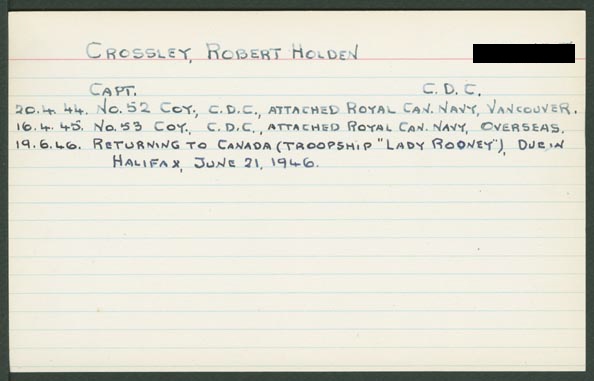 CROSSLEY, ROBERT HOLDEN
CAPT. C.D.C.
20.4.44. No.52 COY., C.D.C., ATTACHED ROYAL CAN. NAVY, VANCOUVER.
16.4.45. No.53 COY., C.D.C., ATTACHED ROYAL CAN. NAVY, OVERSEAS.
19.6.46. RETURNING TO CANADA (TROOPSHIP "LADY RODNEY"), DUE IN
HALIFAX, JUNE 21, 1946.